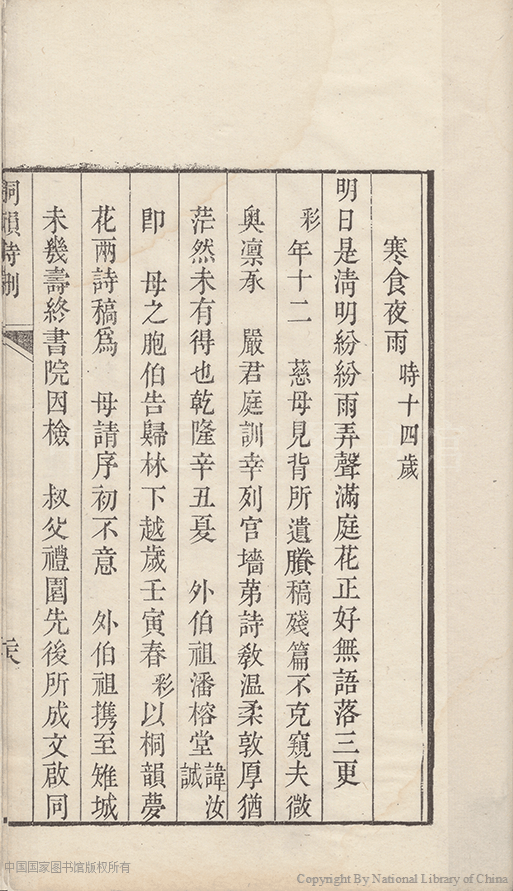 寒食夜雨時十四歲
明日是淸明紛紛雨弄聲滿庭花正好無語落三更
彩年十二 慈母見背所遺賸稿殘篇不克窺夫微
奧凛承 嚴君庭訓幸列宮墻第詩敎溫柔敦厚猶
茫然未有得也乾隆辛丑夏 外伯祖潘榕堂諱汝誠
卽 母之胞伯告歸林下越歲壬寅春彩以桐韻夢
花兩詩稿爲 母請序初不意 外伯祖携至雉城
未幾壽終書院因檢 叔父禮園先後所成文啟同
桐韻詩刪
中国国家图书馆版权所有
Copyright By National Library of China